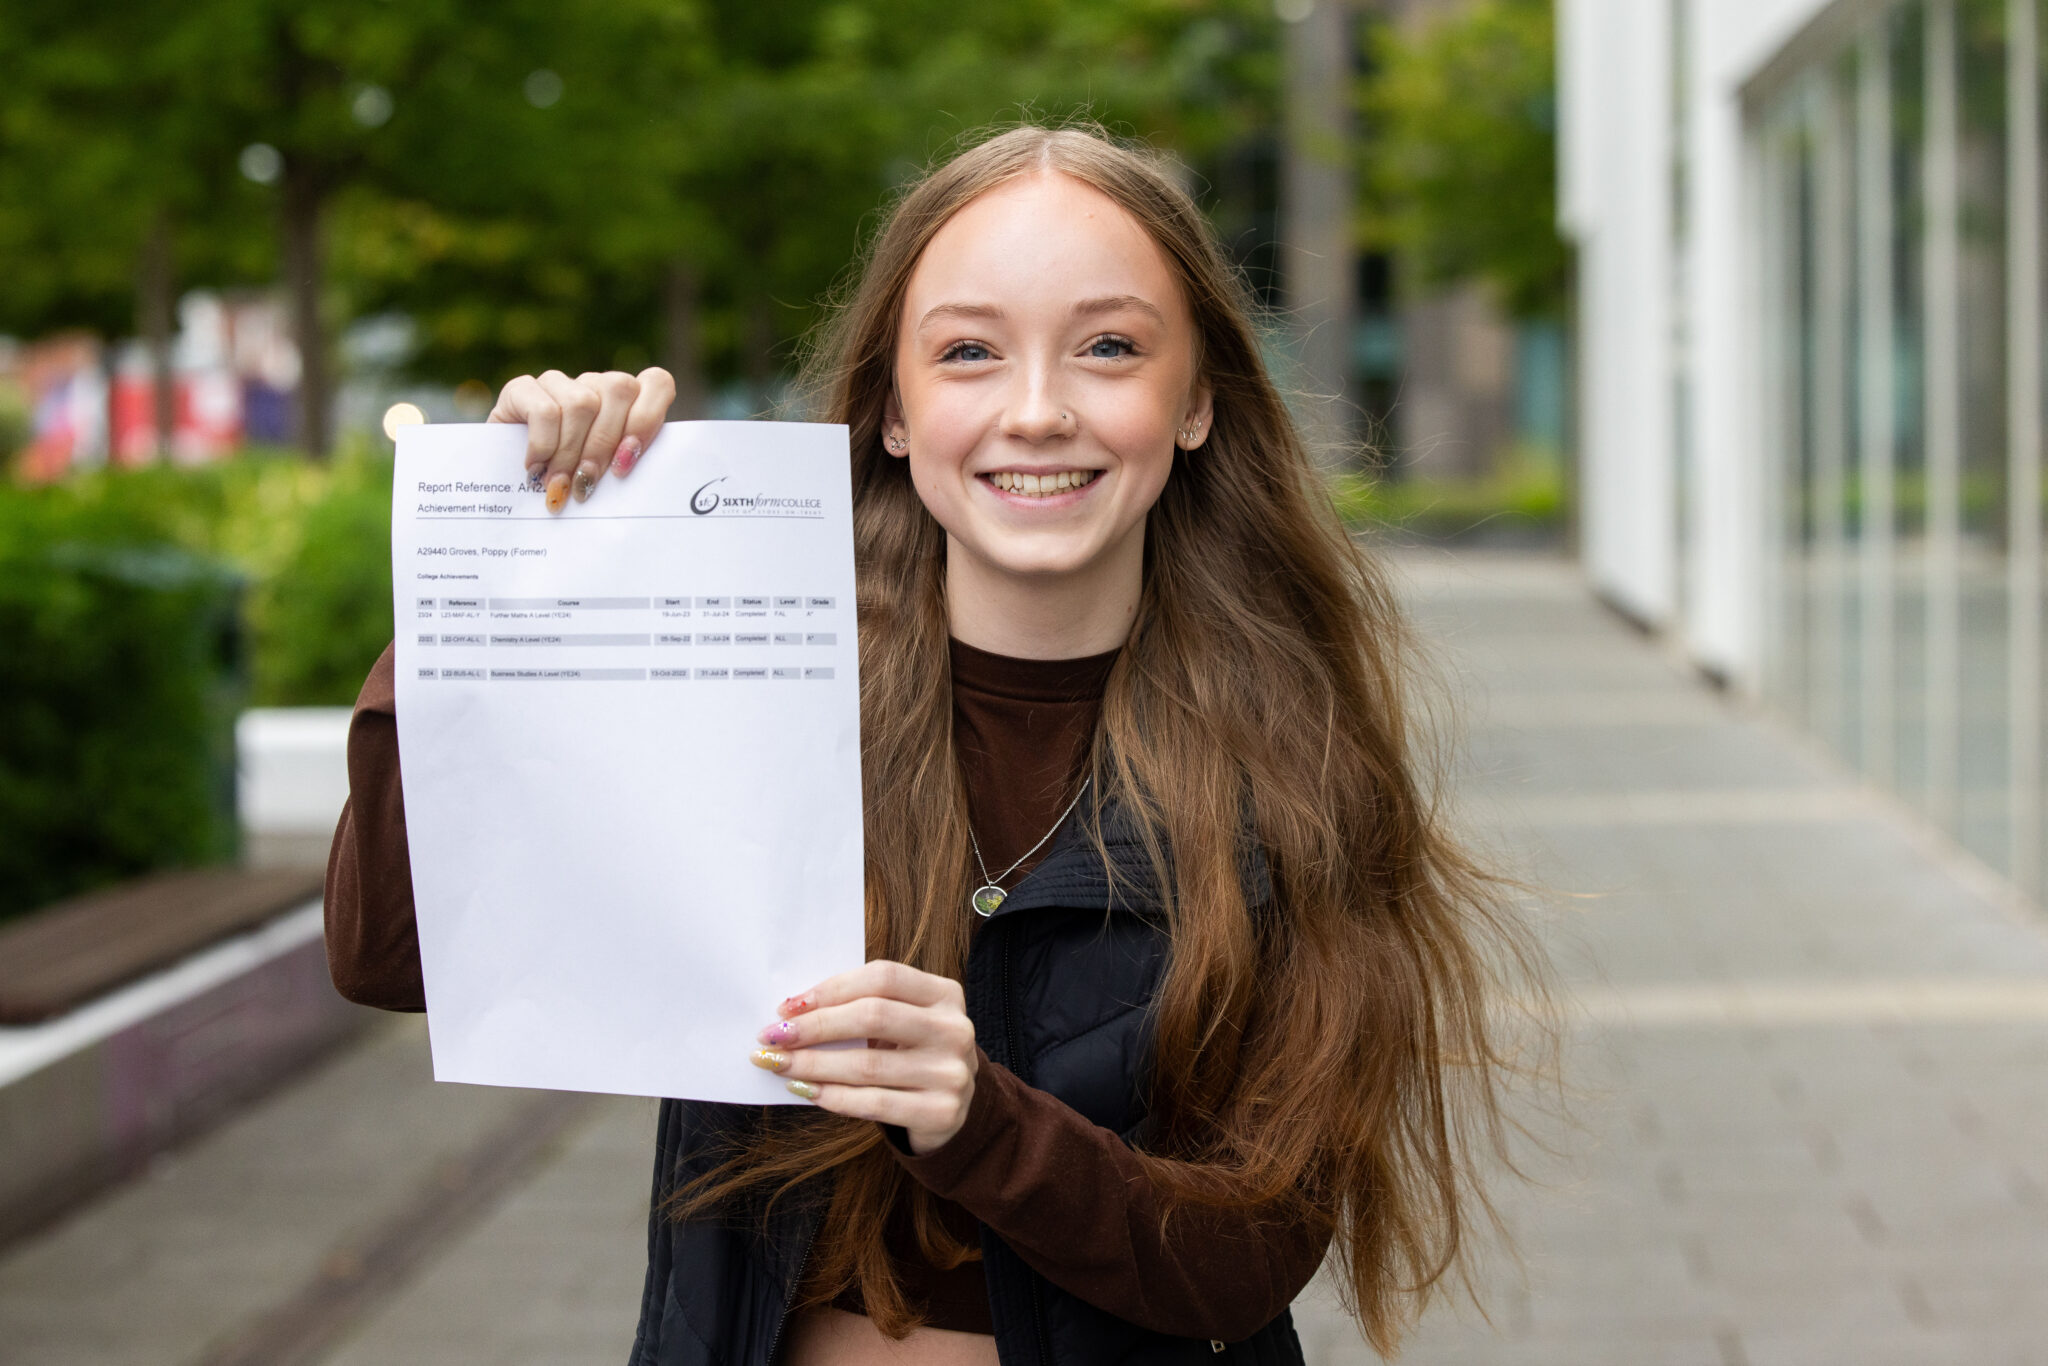 Report Reference:
SIXTH form COLLEGE
CITY OF STOKE-ON-TRENT
Achievement History
A29440 Groves, Poppy (Former)
College Achievements
AYR Reference Course Start End Status Level Grade
23/24 L23-MAF-AL-Y Further Maths A Level (YE24) 19-Jun-23 31-Jul-24 Completed FAL A*
22/23 L22-CHY-AL-L Chemistry A Level (YE24) 05-Sep-22 31-Jul-24 Completed ALL A*
23/24 L22-BUS-AL-L Business Studies A Level (YE24) 13-Oct-2022 31-Jul-24 Completed ALL A*